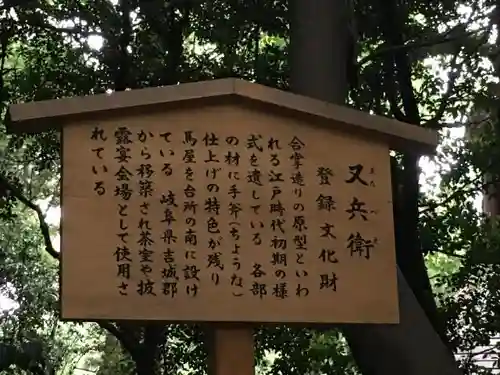 又兵衛
またべえ
登録文化財
合掌造りの原型といわ
れる江戸時代初期の様
式を遺している 各部
の材に手斧(ちような)
仕上げの特色が残り
馬屋を台所の南に設け
ている 岐阜県吉城郡
から移築され茶室や披
露宴会場として使用さ
れている